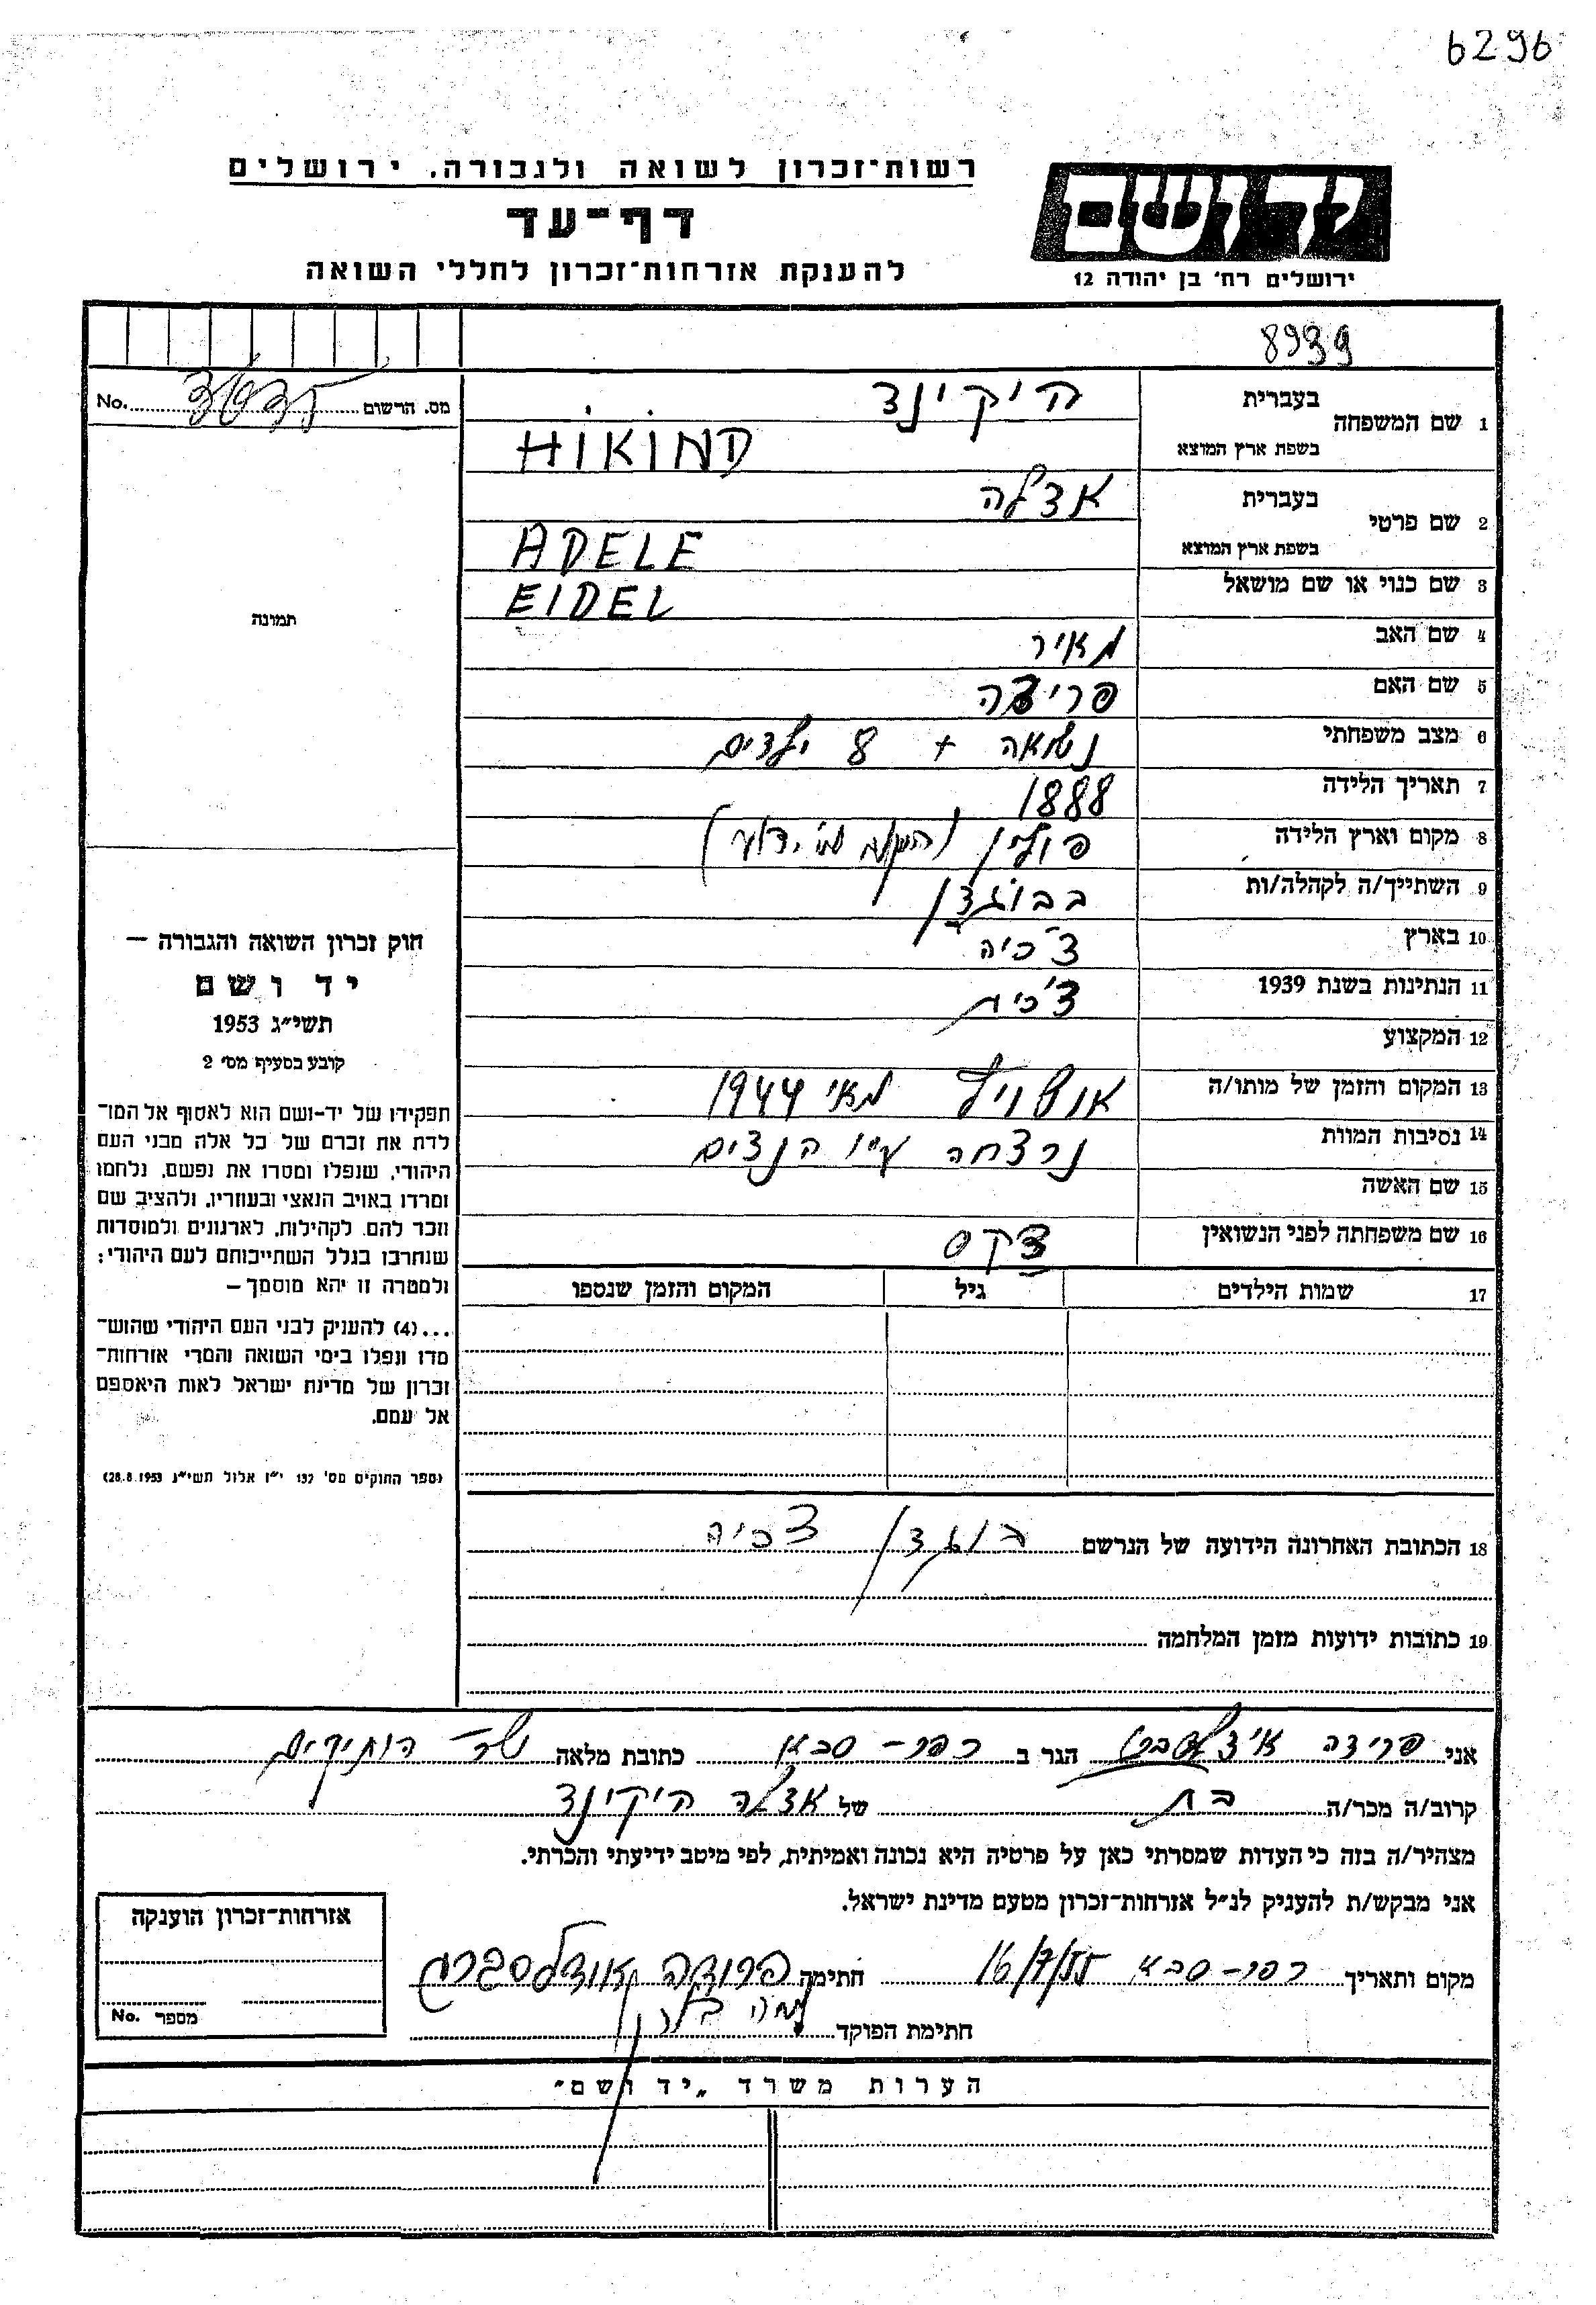 6296
רשות־זכרון לשואה ולגבורה. ירושלים
דף־עד
להענקת אזרחות־זכרון לחללי השואה
יד ושם
ירושלים רח' בן יהודה 12
8939
No. מס. הרשום
1 שם המשפחה בעברית היקינד
בשפת ארץ המוצא HIKIND
2 שם פרטי בעברית אדלה
בשפת ארץ המוצא ADELE
3 שם כנוי או שם מושאל EIDEL
4 שם האב מאיר
5 שם האם פרידה
6 מצב משפחתי נשואה + 8 ילדים
7 תאריך הלידה 1888
8 מקום וארץ הלידה פולין (המקום לא ידוע)
9 השתייך/ה לקהלה/ות
10 בארץ צ'כיה
11 הנתינות בשנת 1939 צ'כית
12 המקצוע
13 המקום והזמן של מותו/ה אושויץ מאי 1944
14 נסיבות המוות נרצחה ע"י הנצים
15 שם האשה
16 שם משפחתה לפני הנשואין
17 שמות הילדים גיל המקום והזמן שנספו
18 הכתובת האחרונה הידועה של הנרשם צכיה
19 כתובות ידועות מזמן המלחמה
תמונה
חוק זכרון השואה והגבורה —
יד ושם
תשי"ג 1953
קובע בסעיף מס' 2
תפקידו של יד-ושם הוא לאסוף אל המו־
לדת את זכרם של כל אלה מבני העם
היהודי, שנפלו ומסרו את נפשם, נלחמו
ומרדו באויב הנאצי ובעוזריו, ולהציב שם
וזכר להם, לקהילות, לארגונים ולמוסדות
שנחרבו בגלל השתייכותם לעם היהודי;
ולמטרה זו יהא מוסמך —
...(4) להעניק לבני העם היהודי שהוש־
מדו ונפלו בימי השואה והמרי אזרחות־
זכרון של מדינת ישראל לאות היאספם
אל עמם.
(ספר החוקים מס' 132 י"ז אלול תשי"ג 28.8.1953)
אני פרידה הגר ב כפר-סבא כתובת מלאה שד- הותיקים
קרוב/ה מכר/ה בת של אדלה היקינד
מצהיר/ה בזה כי העדות שמסרתי כאן על פרטיה היא נכונה ואמיתית, לפי מיטב ידיעתי והכרתי.
אני מבקש/ת להעניק לנ"ל אזרחות־זכרון מטעם מדינת ישראל.
מקום ותאריך כפר-סבא 16/7/55 חתימה
חתימת הפוקד
אזרחות־זכרון הוענקה
No. מספר
הערות משרד "יד ושם"